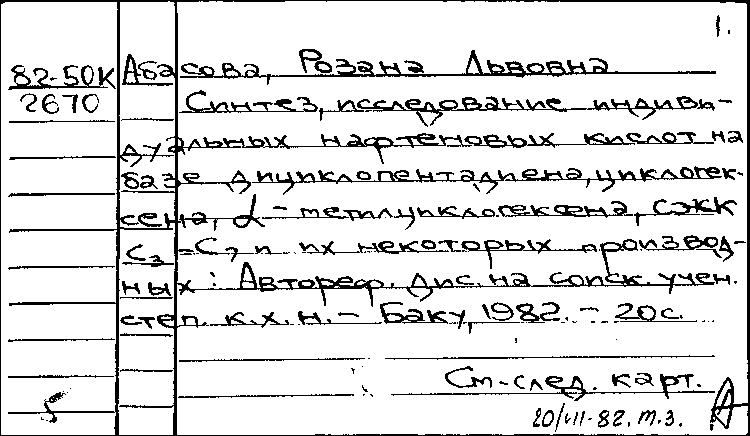 1.
82-50К Абасова, Розана Львовна.
2670 Синтез, исследование индиви-
дуальных нафтеновых кислот на
базе дициклопентадиена, циклогек-
сена, α-метилциклогексена, СЖК
С₃=С₇ и их некоторых производ-
ных: Автореф. дис. на соиск. учен.
степ. к.х.н. - Баку, 1982. - 20с.
См. след. карт.
5 20/VII-82. т.з. А